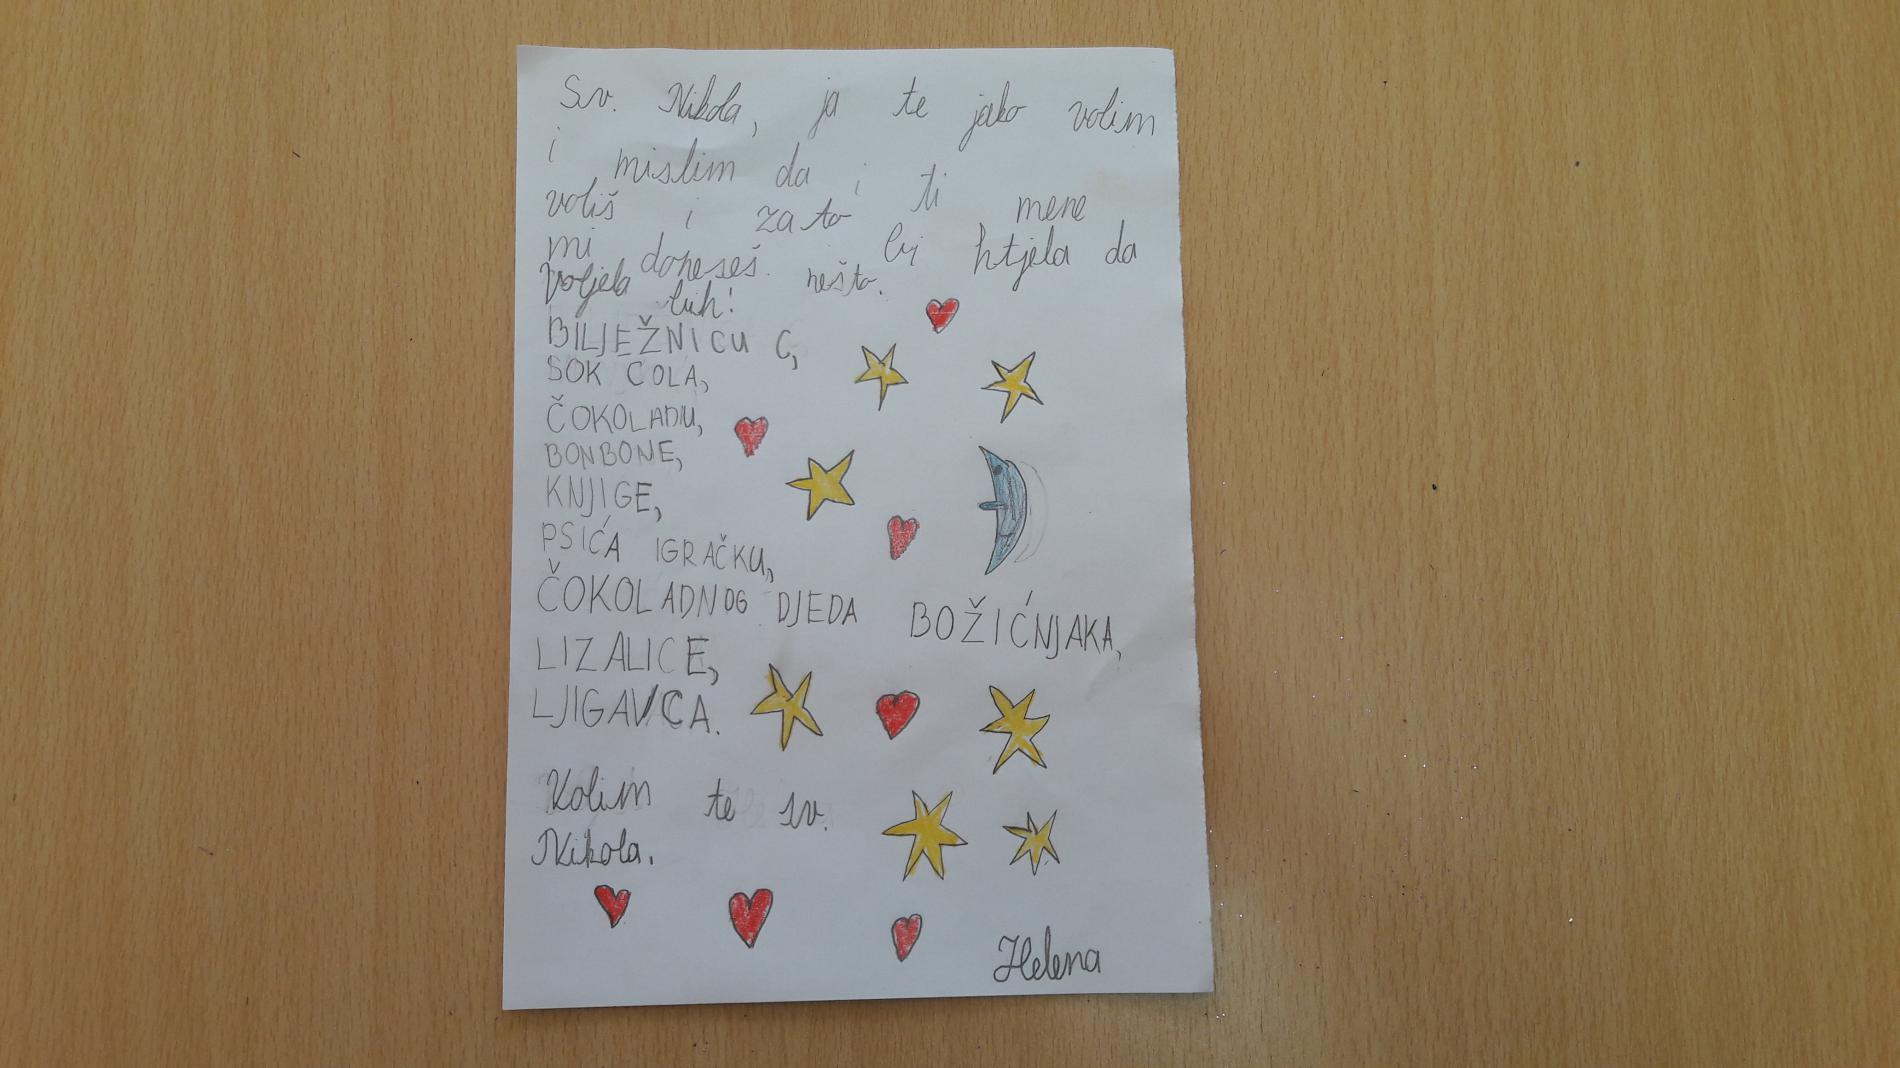 Sv. Nikola, ja te jako volim
i mislim da i ti mene
voliš i zato bi htjela da
mi doneseš nešto.
Voljela bih!
BILJEŽNICU C,
SOK COLA,
ČOKOLADU,
BONBONE,
KNJIGE,
PSIĆA IGRAČKU,
ČOKOLADNOG DJEDA BOŽIĆNJAKA,
LIZALICE,
LJIGAVCA.
Volim te sv.
Nikola.
Helena